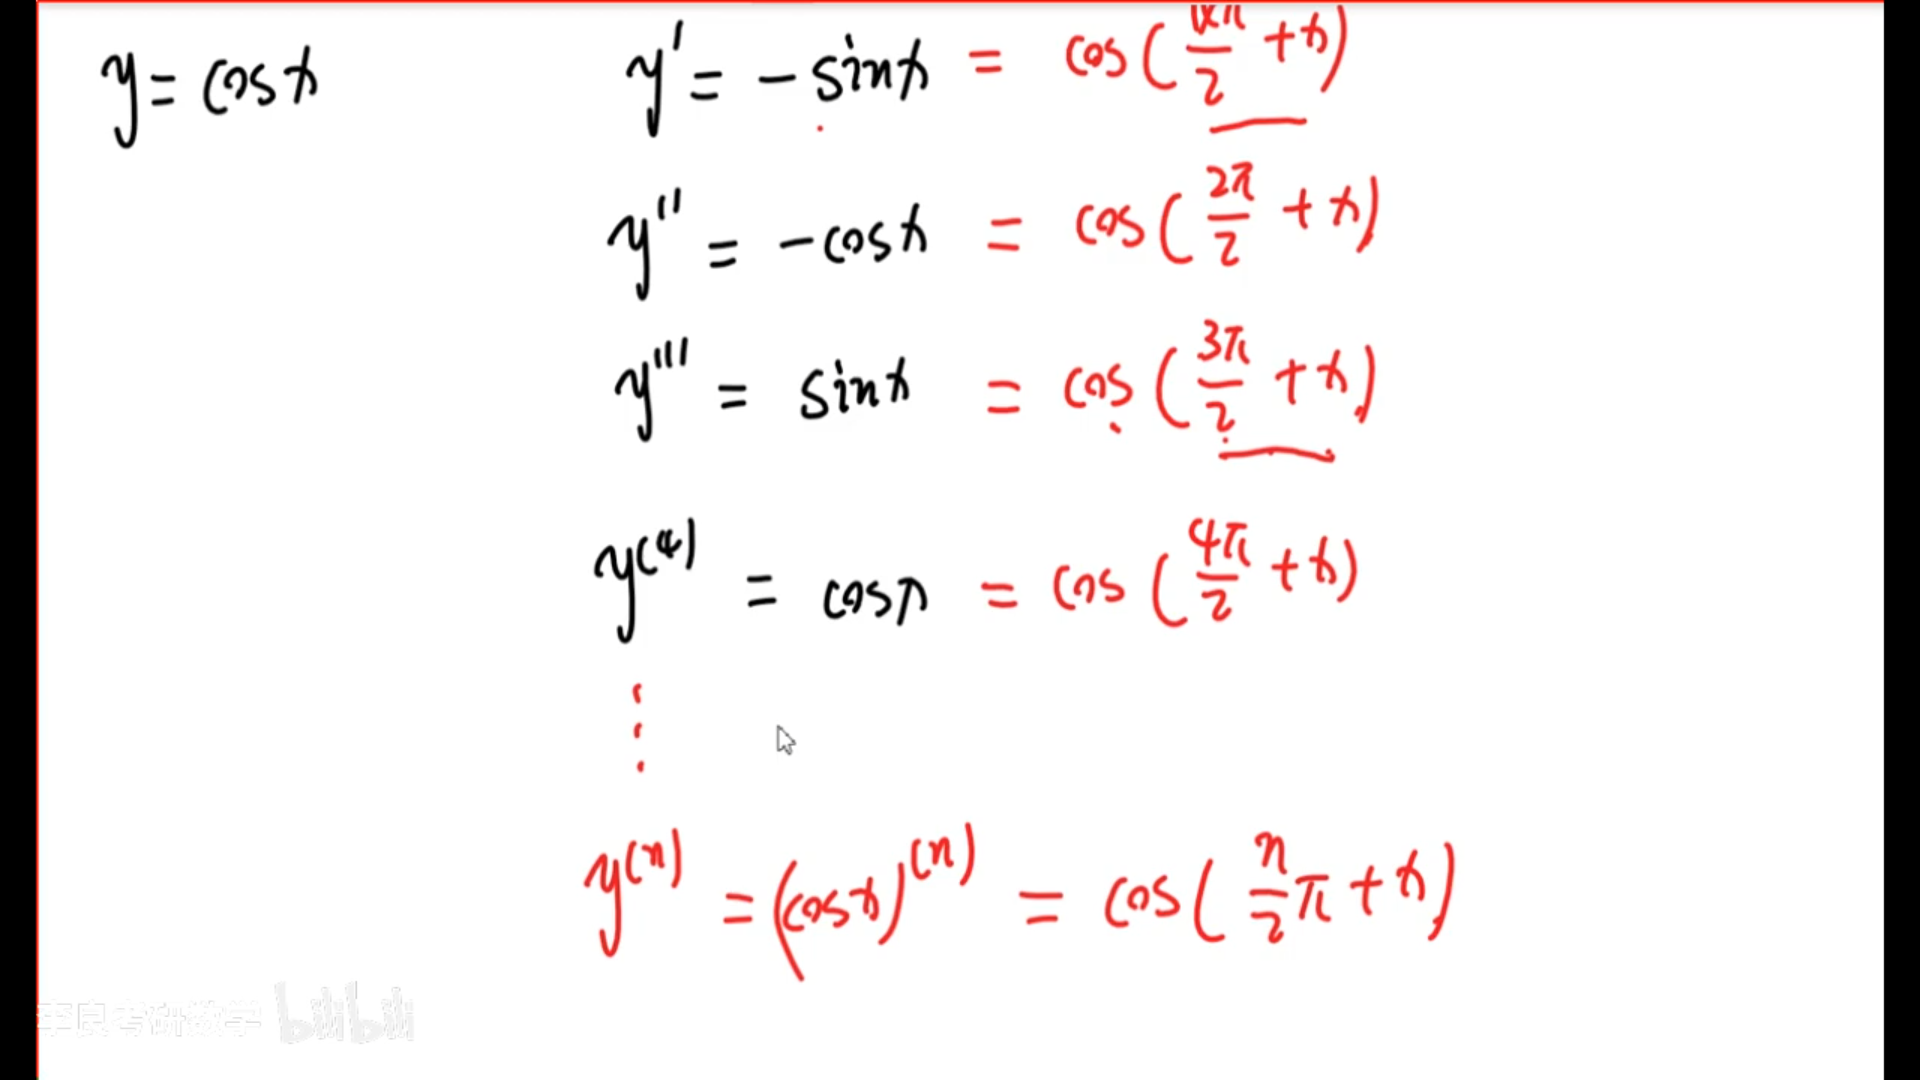 y = cosx y' = -sinx = cos(π/2 + x)
y'' = -cosx = cos(2π/2 + x)
y''' = sinx = cos(3π/2 + x)
y⁽⁴⁾ = cosx = cos(4π/2 + x)
⋮
y⁽ⁿ⁾ = (cosx)⁽ⁿ⁾ = cos(n/2 π + x)
李良考研数学 bilibili